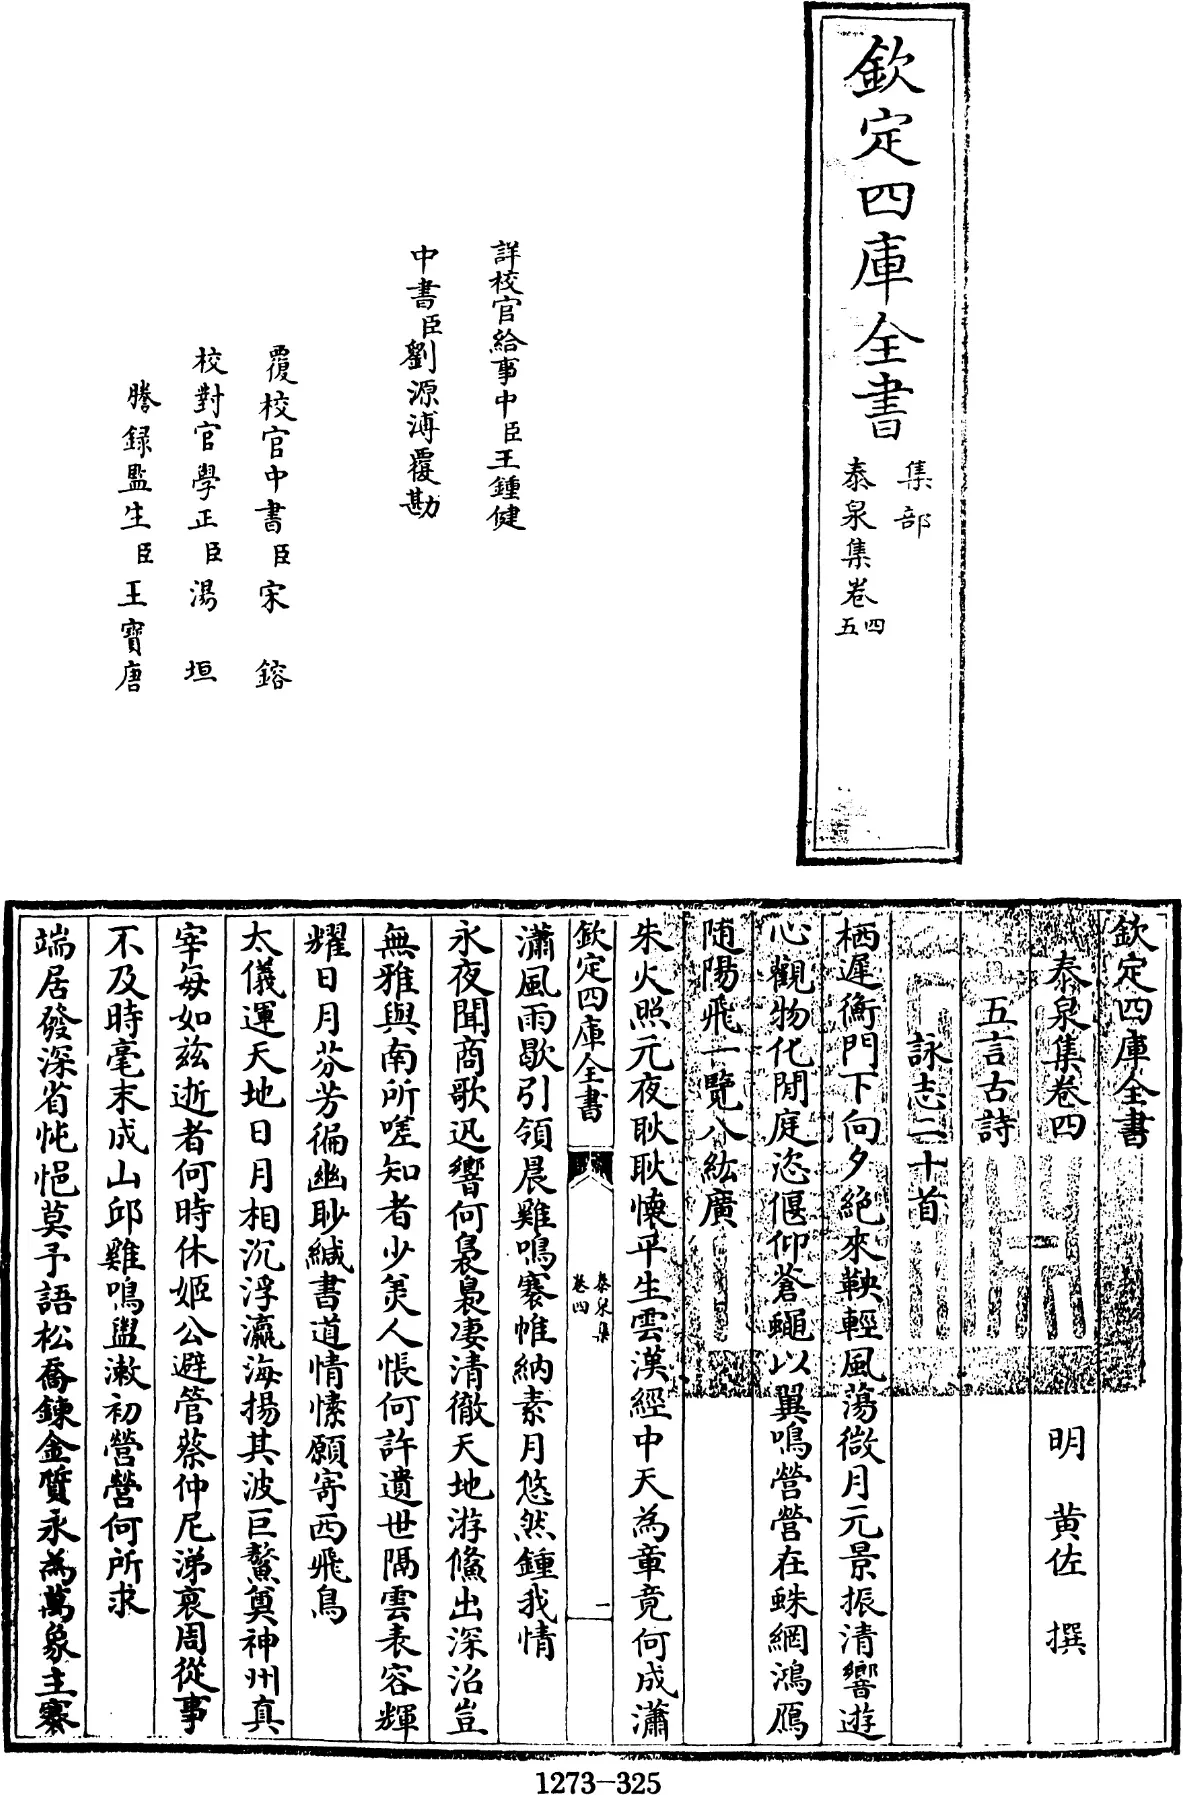 欽定四庫全書
集部
泰泉集卷四
五
詳校官給事中臣王鍾健
中書臣劉源溥覆勘
覆校官中書臣宋鎔
校對官學正臣湯垣
謄録監生臣王寳唐
欽定四庫全書
泰泉集卷四
明 黄佐 撰
五言古詩
詠志二十首
栖遲衡門下向夕絶來鞅輕風蕩微月元景振清響遊
心觀物化閒庭恣偃仰蒼蠅以翼鳴營營在蛛網鴻鴈
随陽飛一覽八紘廣
朱火照元夜耿耿懐平生雲漢經中天為章竟何成瀟
欽定四庫全書
泰泉集
卷四
一
瀟風雨歇引領晨雞鳴褰帷納素月悠然鍾我情
永夜聞商歌迅響何裊裊凄清徹天地游鯈出深沼豈
無雅與南所嗟知者少美人悵何許遺世隔雲表容輝
耀日月芬芳徧幽眇緘書道情愫願寄西飛鳥
太儀運天地日月相沉浮瀛海揚其波巨鰲奠神州真
宰每如兹逝者何時休姬公避管蔡仲尼涕衰周從事
不及時毫末成山邱雞鳴盥漱初營營何所求
端居發深省忳悒莫予語松喬鍊金質永為萬象主褰
1273-325